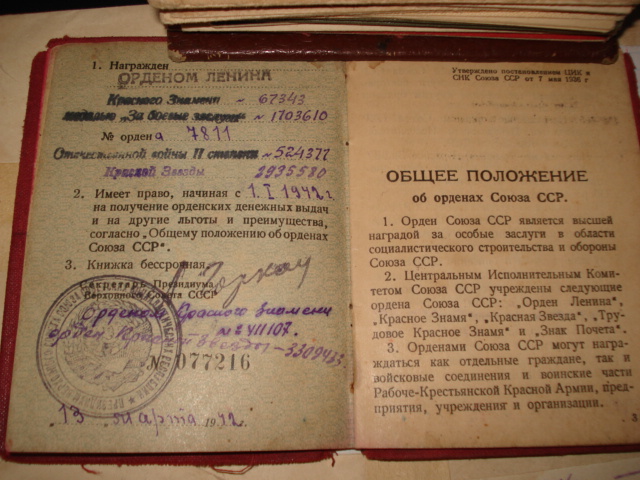 1. Награжден
ОРДЕНОМ ЛЕНИНА
Красного Знамени № 67343
медалью „За боевые заслуги“ № 1703610
№ ордена 7811
Отечественной войны II степени № 524377
Красной Звезды 2935580
2. Имеет право, начиная с 1.I 1942 г.
на получение орденских денежных выдач
и на другие льготы и преимущества,
согласно „Общему положению об орденах
Союза ССР“.
3. Книжка бессрочная.
Секретарь Президиума
Верховного Совета СССР
Орденом Красного Знамени
орден Красной Звезды - 3309485
№ 077216
13 марта 1942 г.
Утверждено постановлением ЦИК и
СНК Союза ССР от 7 мая 1936 г
ОБЩЕЕ ПОЛОЖЕНИЕ
об орденах Союза ССР.
1. Орден Союза ССР является высшей
наградой за особые заслуги в области
социалистического строительства и обороны
Союза ССР.
2. Центральным Исполнительным Коми-
тетом Союза ССР учреждены следующие
ордена Союза ССР: „Орден Ленина“,
„Красное Знамя“, „Красная Звезда“, „Тру-
довое Красное Знамя“ и „Знак Почета“.
3. Орденами Союза ССР могут на-
граждаться как отдельные граждане, так и
войсковые соединения и воинские части
Рабоче-Крестьянской Красной Армии, пред-
приятия, учреждения и организации.
3